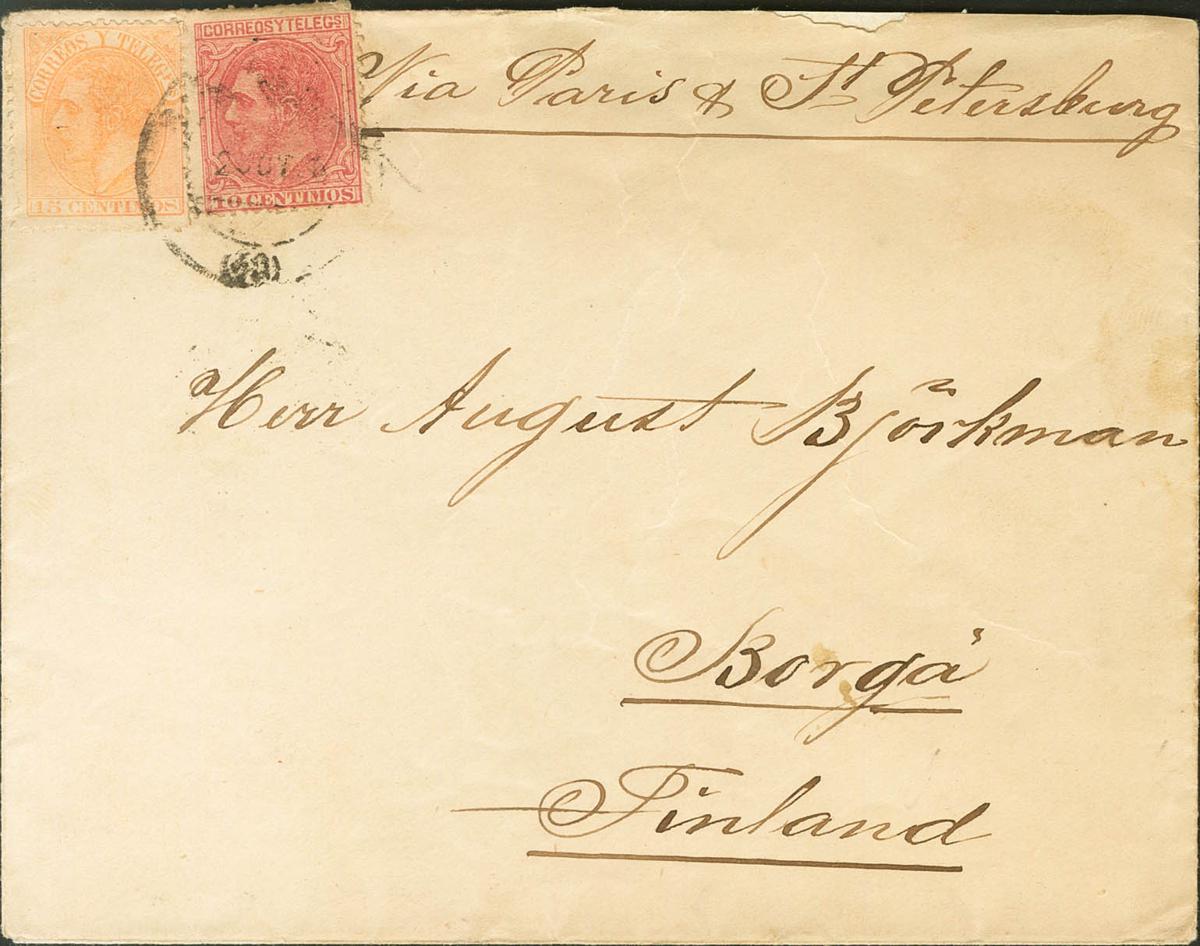 CORREOS Y TELEGS
15 CENTIMOS
CORREOS Y TELEGS
10 CENTIMOS
(40)
Via Paris & St Petersburg
Herr August Björkman
Borgå
Finland